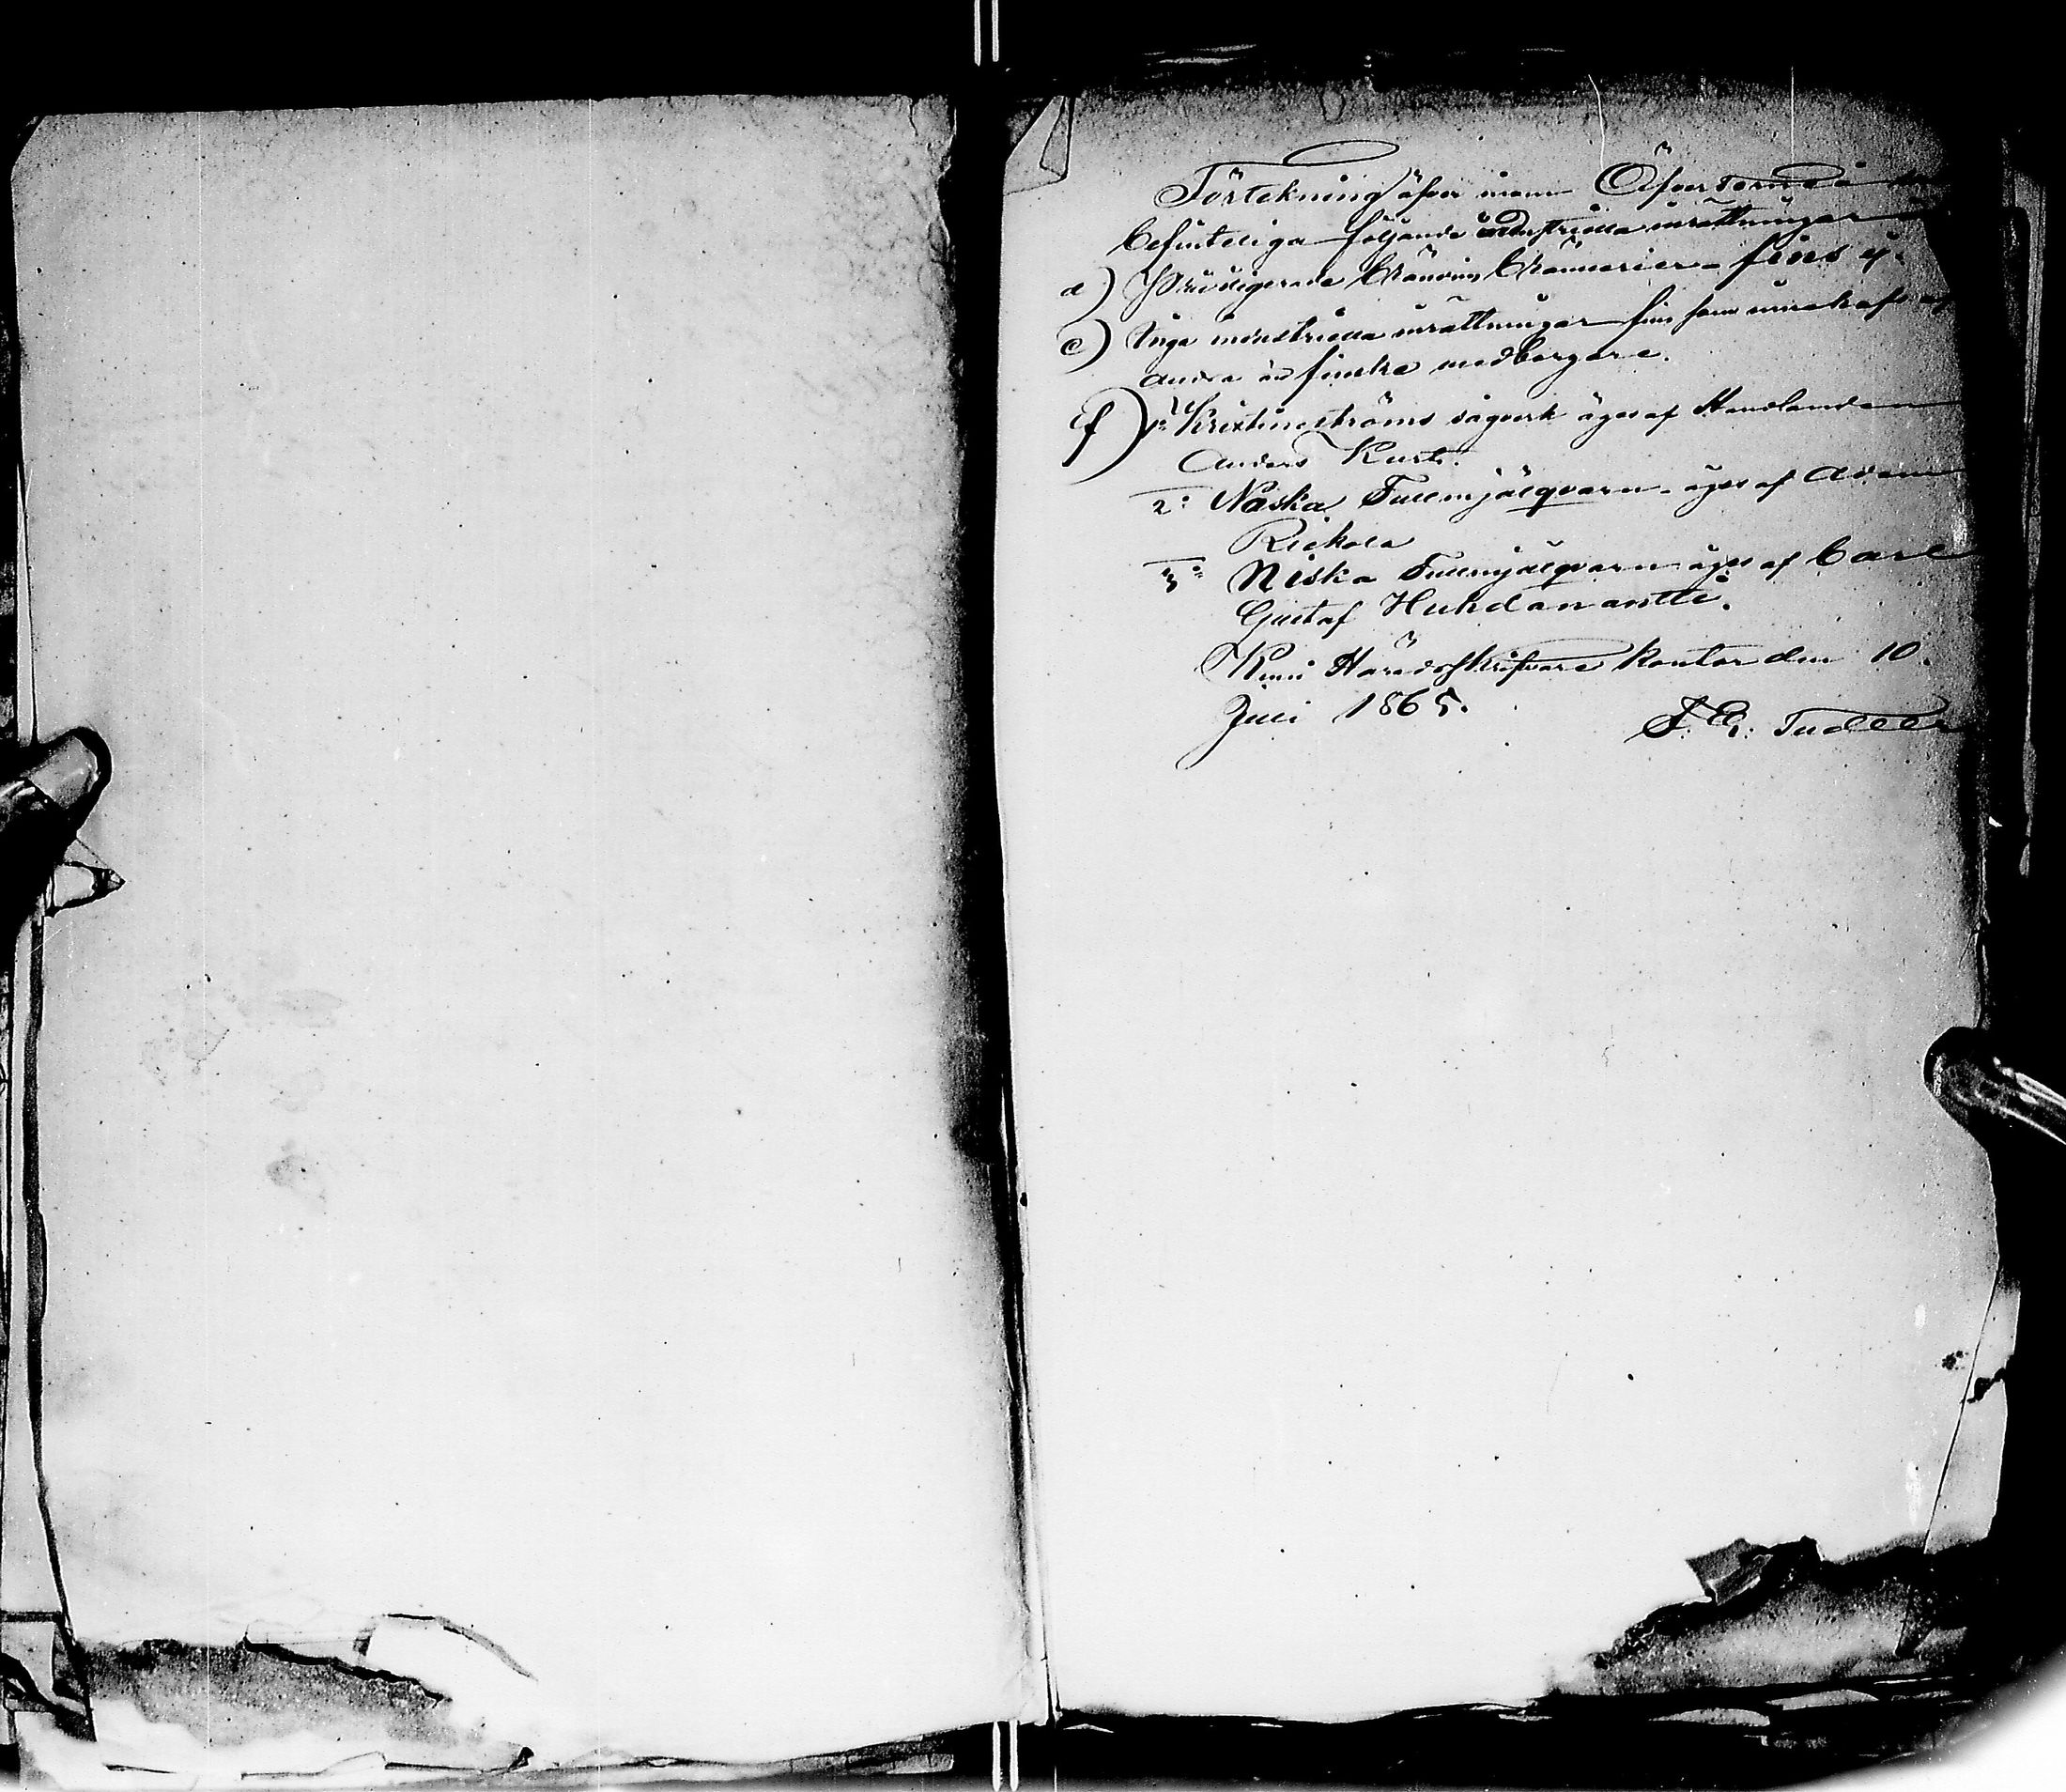 Förtekning öfver inom Öfvertorneå
befinteliga följande industriella inrättningar
a) Priviligerade bränvins brännerier – fins ej.
e) Inga industriella inrättningar fins som innehafs af
andra än finske medborgare.
f) 1: Kristineströms sågverk äges af Handlanden
Anders Kurt.
2: Naska Tullmjölqvarn – äges af Adam
Riekola
3: Niska Tullmjölqvarn äges af Carl
Gustaf Huhdanantti.
Kemi Häradsskrifvare kontor den 10.
Juli 1865.
F. E. Tudeer